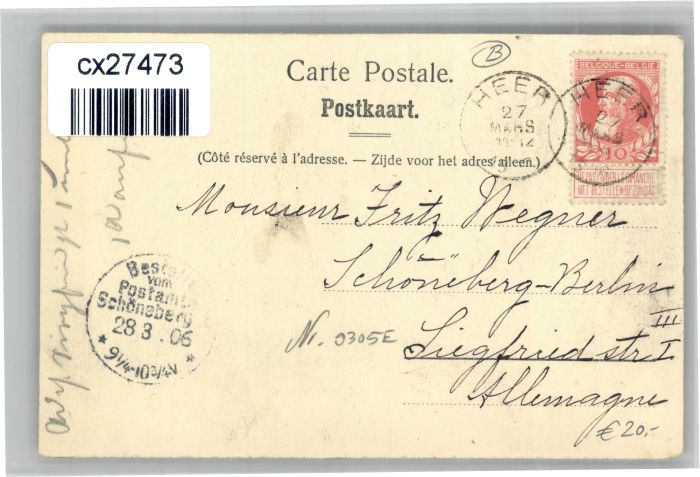 cx27473
B
Carte Postale.
Postkaart.
(Côté réservé à l'adresse. — Zijde voor het adres alleen.)
HEER
27
MARS
11-12
BELGIQUE-BELGIE
HEER
10
NE PAS LIVRER LE DIMANCHE
NIET BESTELLEN OP ZONDAG
Monsieur Fritz Wegner
Schöneberg-Berlin
III
Siegfriedstr. I
Allemagne
Nr. 0305E
€ 20,-
Bestellt
vom
Postamte
Schöneberg
28 3. 06
* 9 1/4-10 3/4 V *